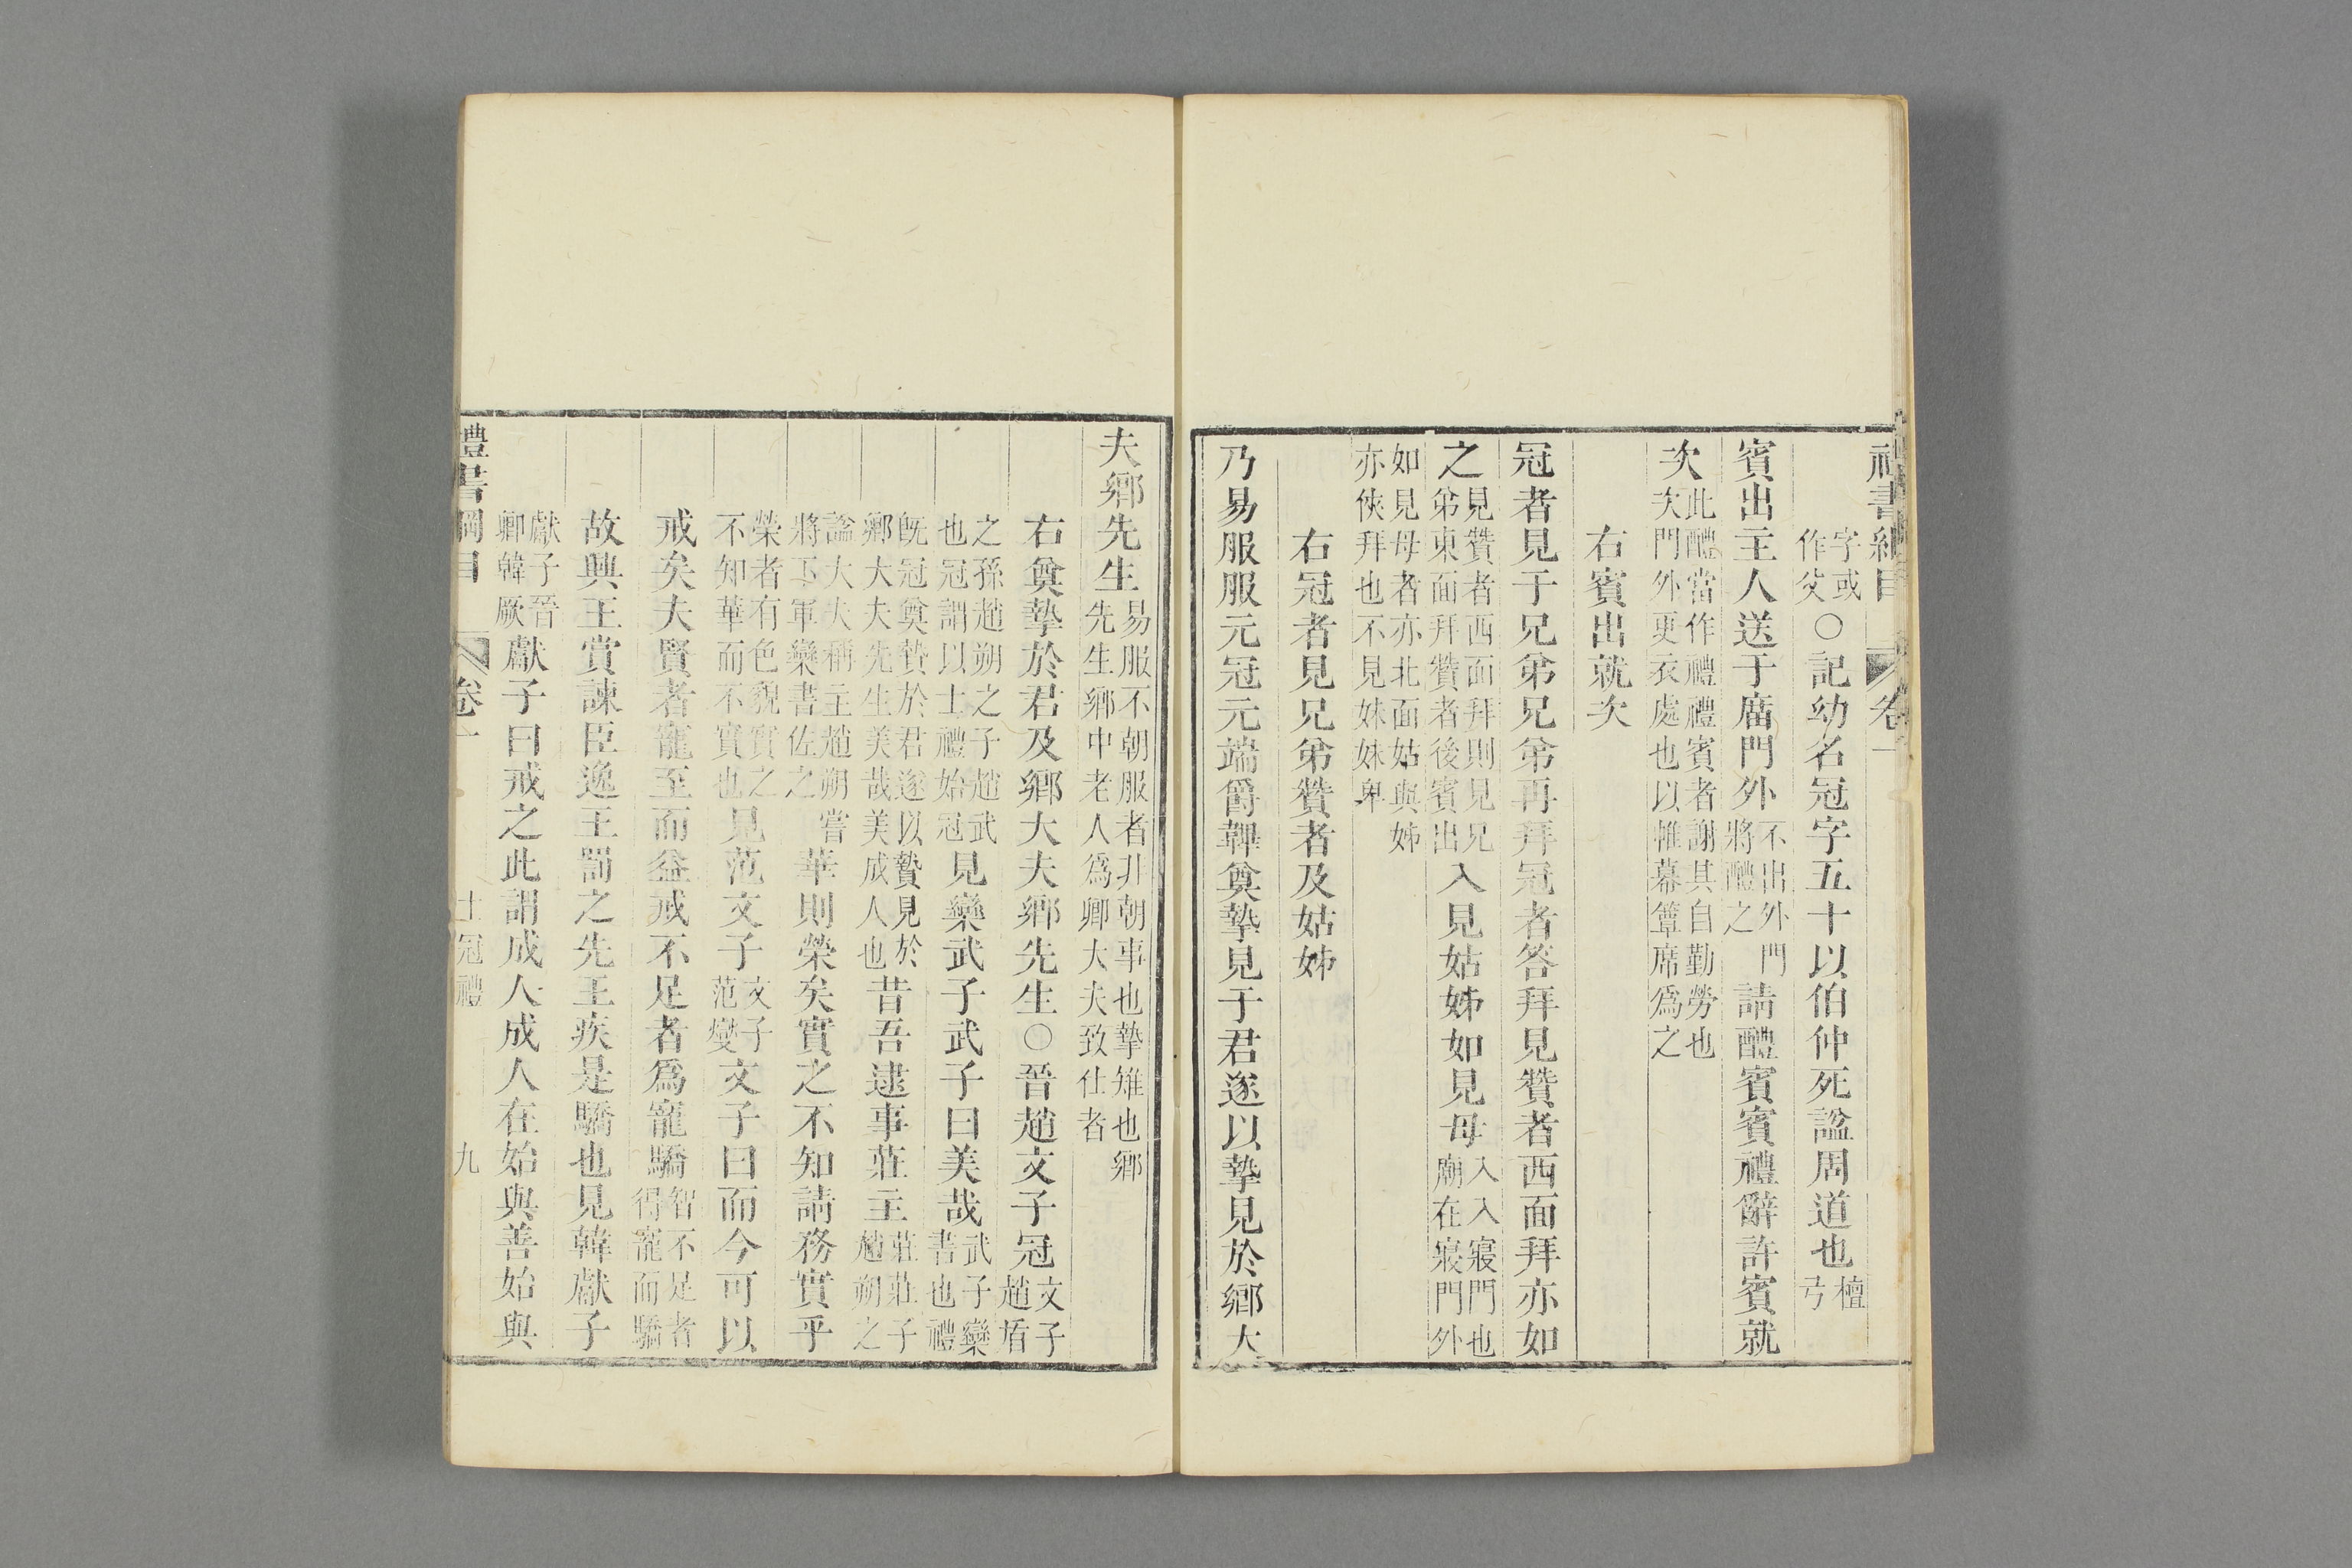 禮書綱目　卷一
字或作父○記幼名冠字五十以伯仲死謚周道也檀弓
賓出主人送于廟門外不出外門將醴之請醴賓賓禮辭許賓就
次此醴當作禮禮賓者謝其自勤勞也次門外更衣處也以帷幕簟席爲之
右賓出就次
冠者見于兄弟兄弟再拜冠者答拜見贊者西面拜亦如
之見贊者西面拜則見兄弟東面拜贊者後賓出入見姑姊如見母入入寢門也廟在寢門外
如見母者亦北面姑與姊亦俠拜也不見妹妹卑
右冠者見兄弟贊者及姑姊
乃易服服元冠元端爵韠奠摯見于君遂以摯見於鄉大
夫鄉先生易服不朝服者非朝事也摯雉也鄉先生鄉中老人爲卿大夫致仕者
右奠摯於君及鄉大夫鄉先生○晉趙文子冠文子趙盾
之孫趙朔之子趙武也冠謂以士禮始冠見欒武子武子曰美哉武子欒書也禮
旣冠奠贄於君遂以贄見於鄉大夫先生美哉美成人也昔吾逮事莊主莊莊子趙朔之
謚大夫稱主趙朔嘗將下軍欒書佐之華則榮矣實之不知請務實乎
榮者有色貌實之不知華而不實也見范文子文子范燮文子曰而今可以
戒矣夫賢者寵至而益戒不足者爲寵驕智不足者得寵而驕
故興王賞諫臣逸王罰之先王疾是驕也見韓獻子
獻子晉卿韓厥獻子曰戒之此謂成人成人在始與善始與
禮書綱目　卷一　士冠禮　九